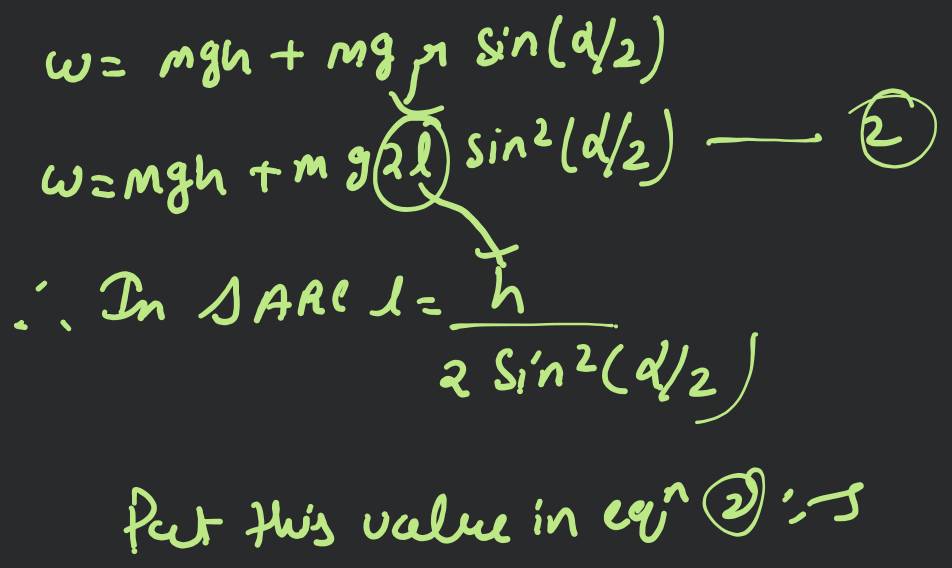 ω = mgh + mg r sin(α/2)
ω = mgh + mg 2l sin²(α/2) — 2
∴ In ΔARC l = h / 2 sin²(α/2)
Put this value in eqⁿ 2 :-